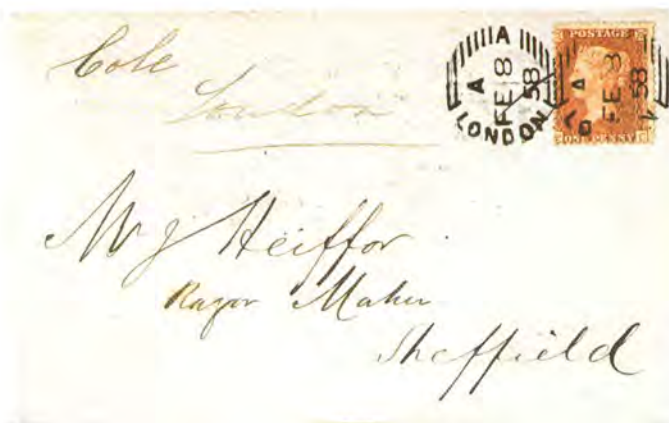 Cole
London
A
A
FE 8
58
LONDON
POSTAGE
A
FE 8
58
ONE PENNY
Mr J Heiffor
Razor Maker
Sheffield